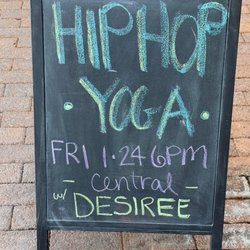 HIP HOP
· YOGA ·
FRI 1·24 6PM
- central -
w/ DESIREE